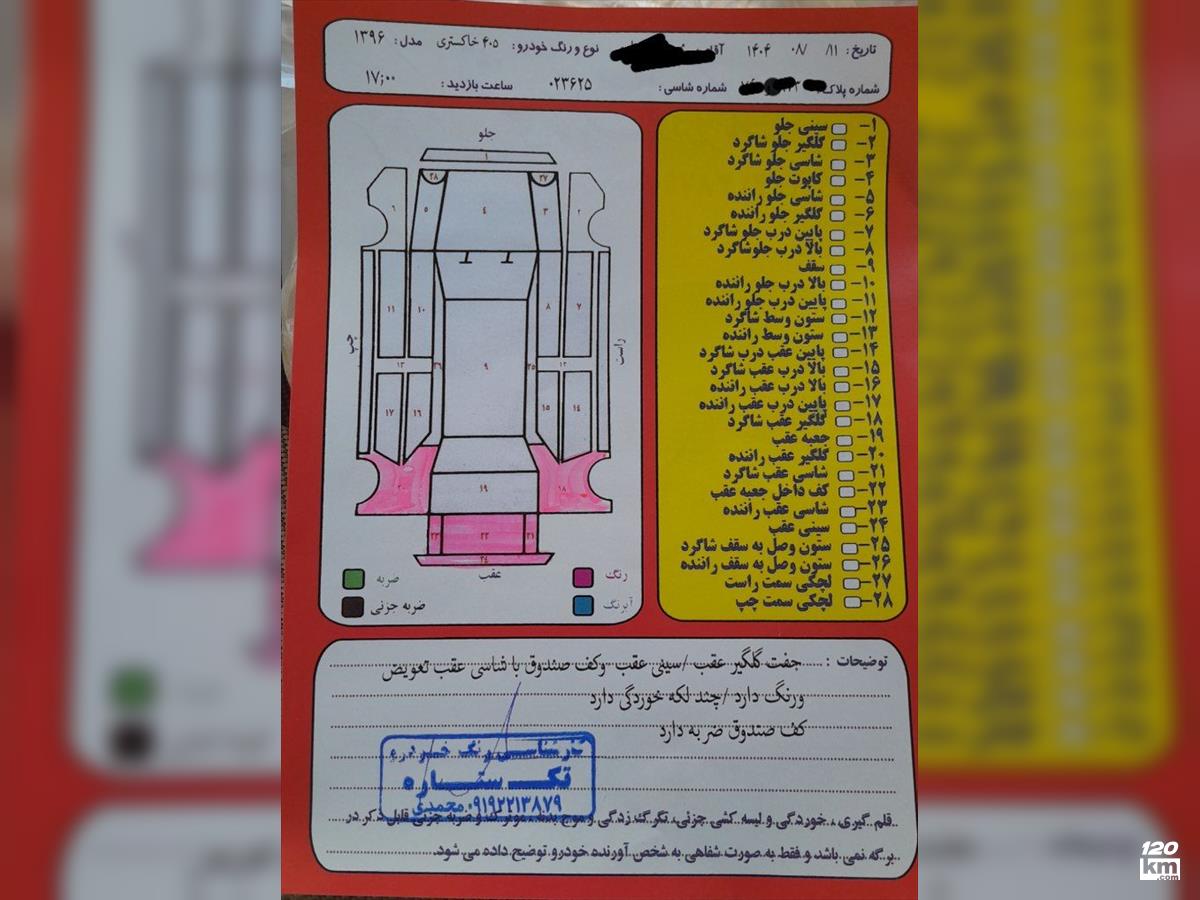 تاریخ: ۱۱/ ۰۸/ ۱۴۰۴ نوع و رنگ خودرو: ۴۰۵ خاکستری مدل: ۱۳۹۶
شماره پلاک: شماره شاسی: ۰۲۳۶۲۵ ساعت بازدید: ۱۷:۰۰
۱- سینی جلو
۲- گلگیر جلو شاگرد
۳- شاسی جلو شاگرد
۴- کاپوت جلو
۵- شاسی جلو راننده
۶- گلگیر جلو راننده
۷- پایین درب جلو شاگرد
۸- بالا درب جلو شاگرد
۹- سقف
۱۰- بالا درب جلو راننده
۱۱- پایین درب جلو راننده
۱۲- ستون وسط شاگرد
۱۳- ستون وسط راننده
۱۴- پایین عقب درب شاگرد
۱۵- بالا درب عقب شاگرد
۱۶- بالا درب عقب راننده
۱۷- پایین درب عقب راننده
۱۸- گلگیر عقب شاگرد
۱۹- جعبه عقب
۲۰- گلگیر عقب راننده
۲۱- شاسی عقب شاگرد
۲۲- کف داخل جعبه عقب
۲۳- شاسی عقب راننده
۲۴- سینی عقب
۲۵- ستون وصل به سقف شاگرد
۲۶- ستون وصل به سقف راننده
۲۷- لچکی سمت راست
۲۸- لچکی سمت چپ
جلو
۱
۲۷ ۲۸
۲ ۳ ۴ ۵ ۶
۷ ۸ ۱۰ ۱۱
راست چپ
۱۲ ۲۵ ۹ ۲۶ ۱۳
۱۴ ۱۵ ۱۶ ۱۷
۱۸ ۱۹ ۲۰
۲۱ ۲۲ ۲۳
۲۴
عقب
رنگ ضربه
آبرنگ ضربه جزئی
توضیحات : جفت گلگیر عقب /سینی عقب وکف صندوق با شاسی عقب تعویض
ورنگ دارد /چند لکه خوردگی دارد
کف صندوق ضربه دارد
کارشناسی رنگ خودرو
تک ستاره
۰۹۱۹۲۲۱۳۸۷۹ محمدی
قلم گیری، خوردگی و لیسه کشی جزئی، تگرگ زدگی و موج بدنه، و ضربه جزئی قابل ذکر در
برگه نمی باشد و فقط به صورت شفاهی به شخص آورنده خودرو توضیح داده می شود.
120
km
.com